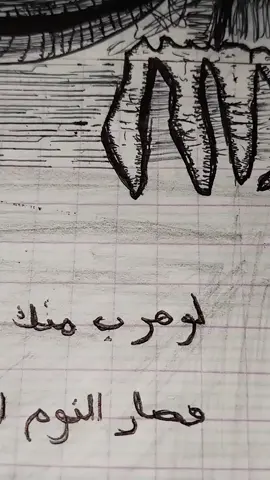 لو هرب منك
فصار النوم